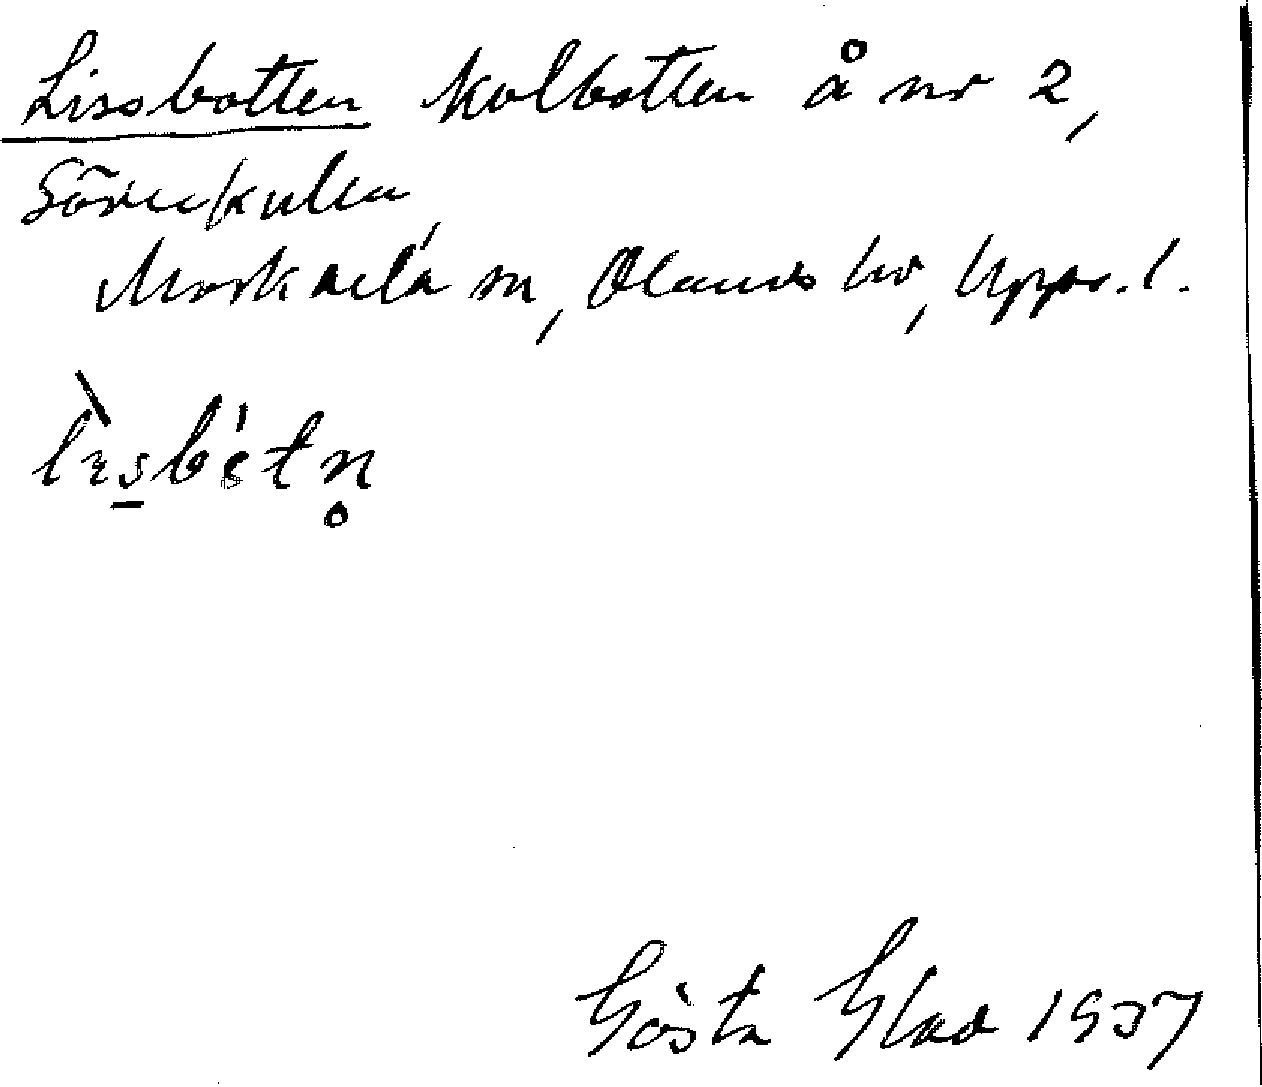 Lissbotten kolbotten å nr 2,
Sörekulen
Morkarla sn, Olands hd, Uppl.
Gösta Glad 1937